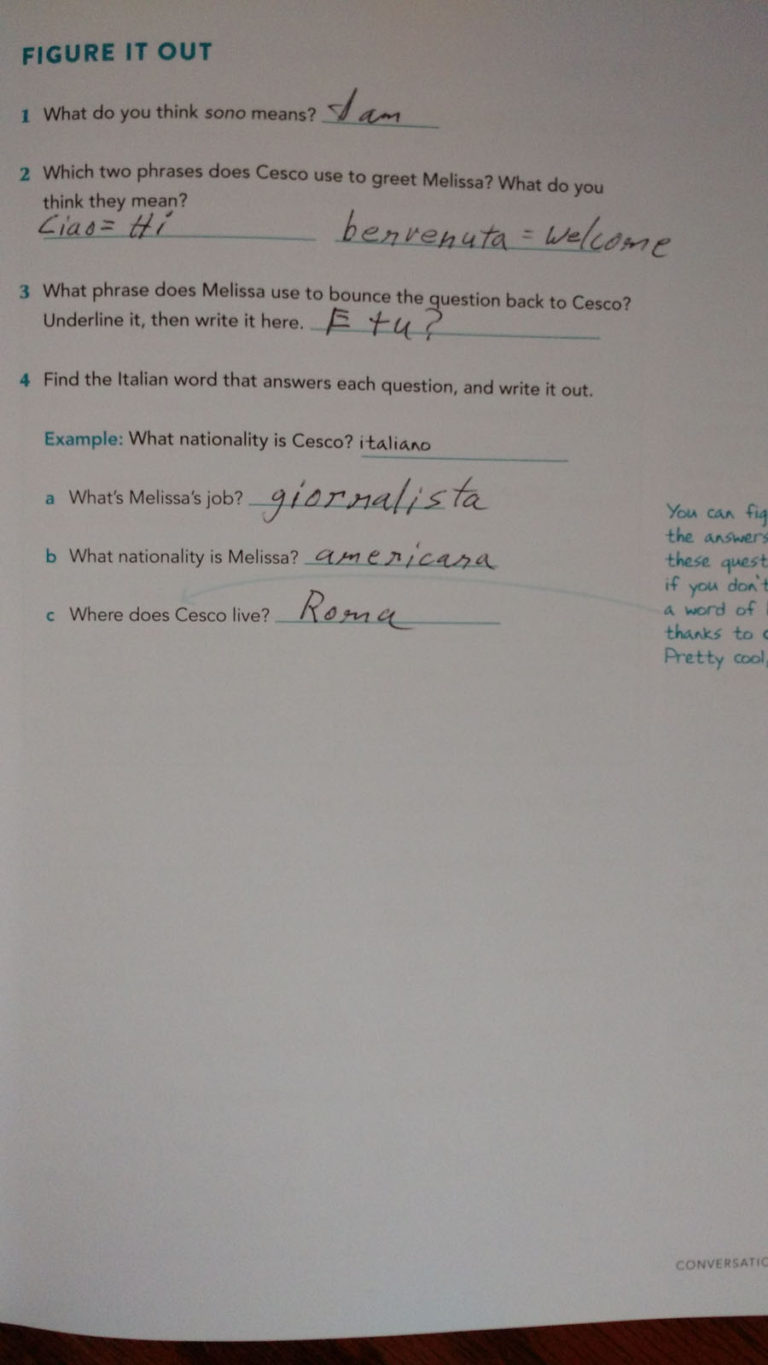 FIGURE IT OUT
1 What do you think sono means? I am
2 Which two phrases does Cesco use to greet Melissa? What do you
think they mean?
Ciao = Hi benvenuta = Welcome
3 What phrase does Melissa use to bounce the question back to Cesco?
Underline it, then write it here. E tu?
4 Find the Italian word that answers each question, and write it out.
Example: What nationality is Cesco? italiano
a What's Melissa's job? giornalista
You can fig
the answers
b What nationality is Melissa? americana
these quest
if you don't
c Where does Cesco live? Roma
a word of
thanks to
Pretty cool,
CONVERSATIO